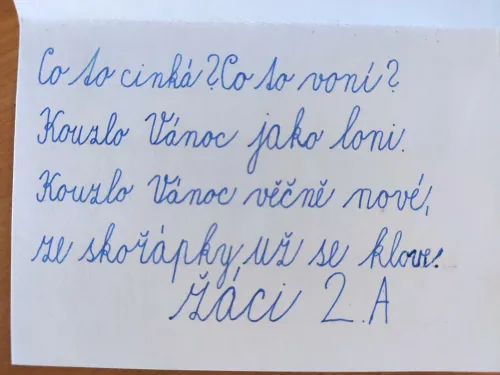 Co to cinká? Co to voní?
Kouzlo Vánoc jako loni.
Kouzlo Vánoc věčně nové,
ze skořápky už se klove!
žáci 2.A